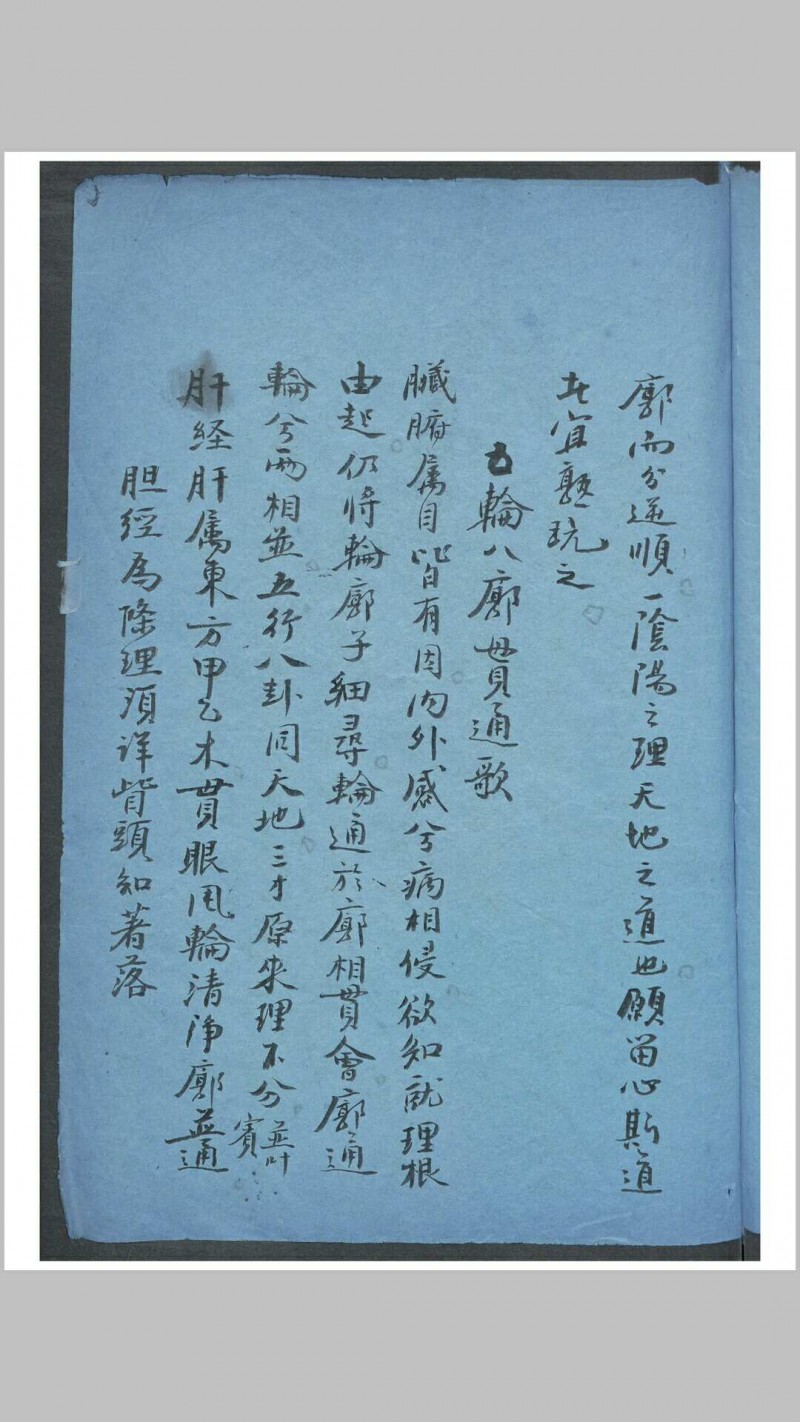 廓而分逆順一陰陽之理天地之道也願留心斯道
者宜熟玩之
五輪八廓貫通歌
臟腑属目皆有因内外感兮病相侵欲知就理根
由起仍将輪廓子細尋輪通於廓相貫會廓通
輪兮両相並五行八卦同天地三才原来理不分並叶
賓
肝経肝属東方甲乙木貫眼风輪清净廓並通
胆經為條理須详眥頭知著落